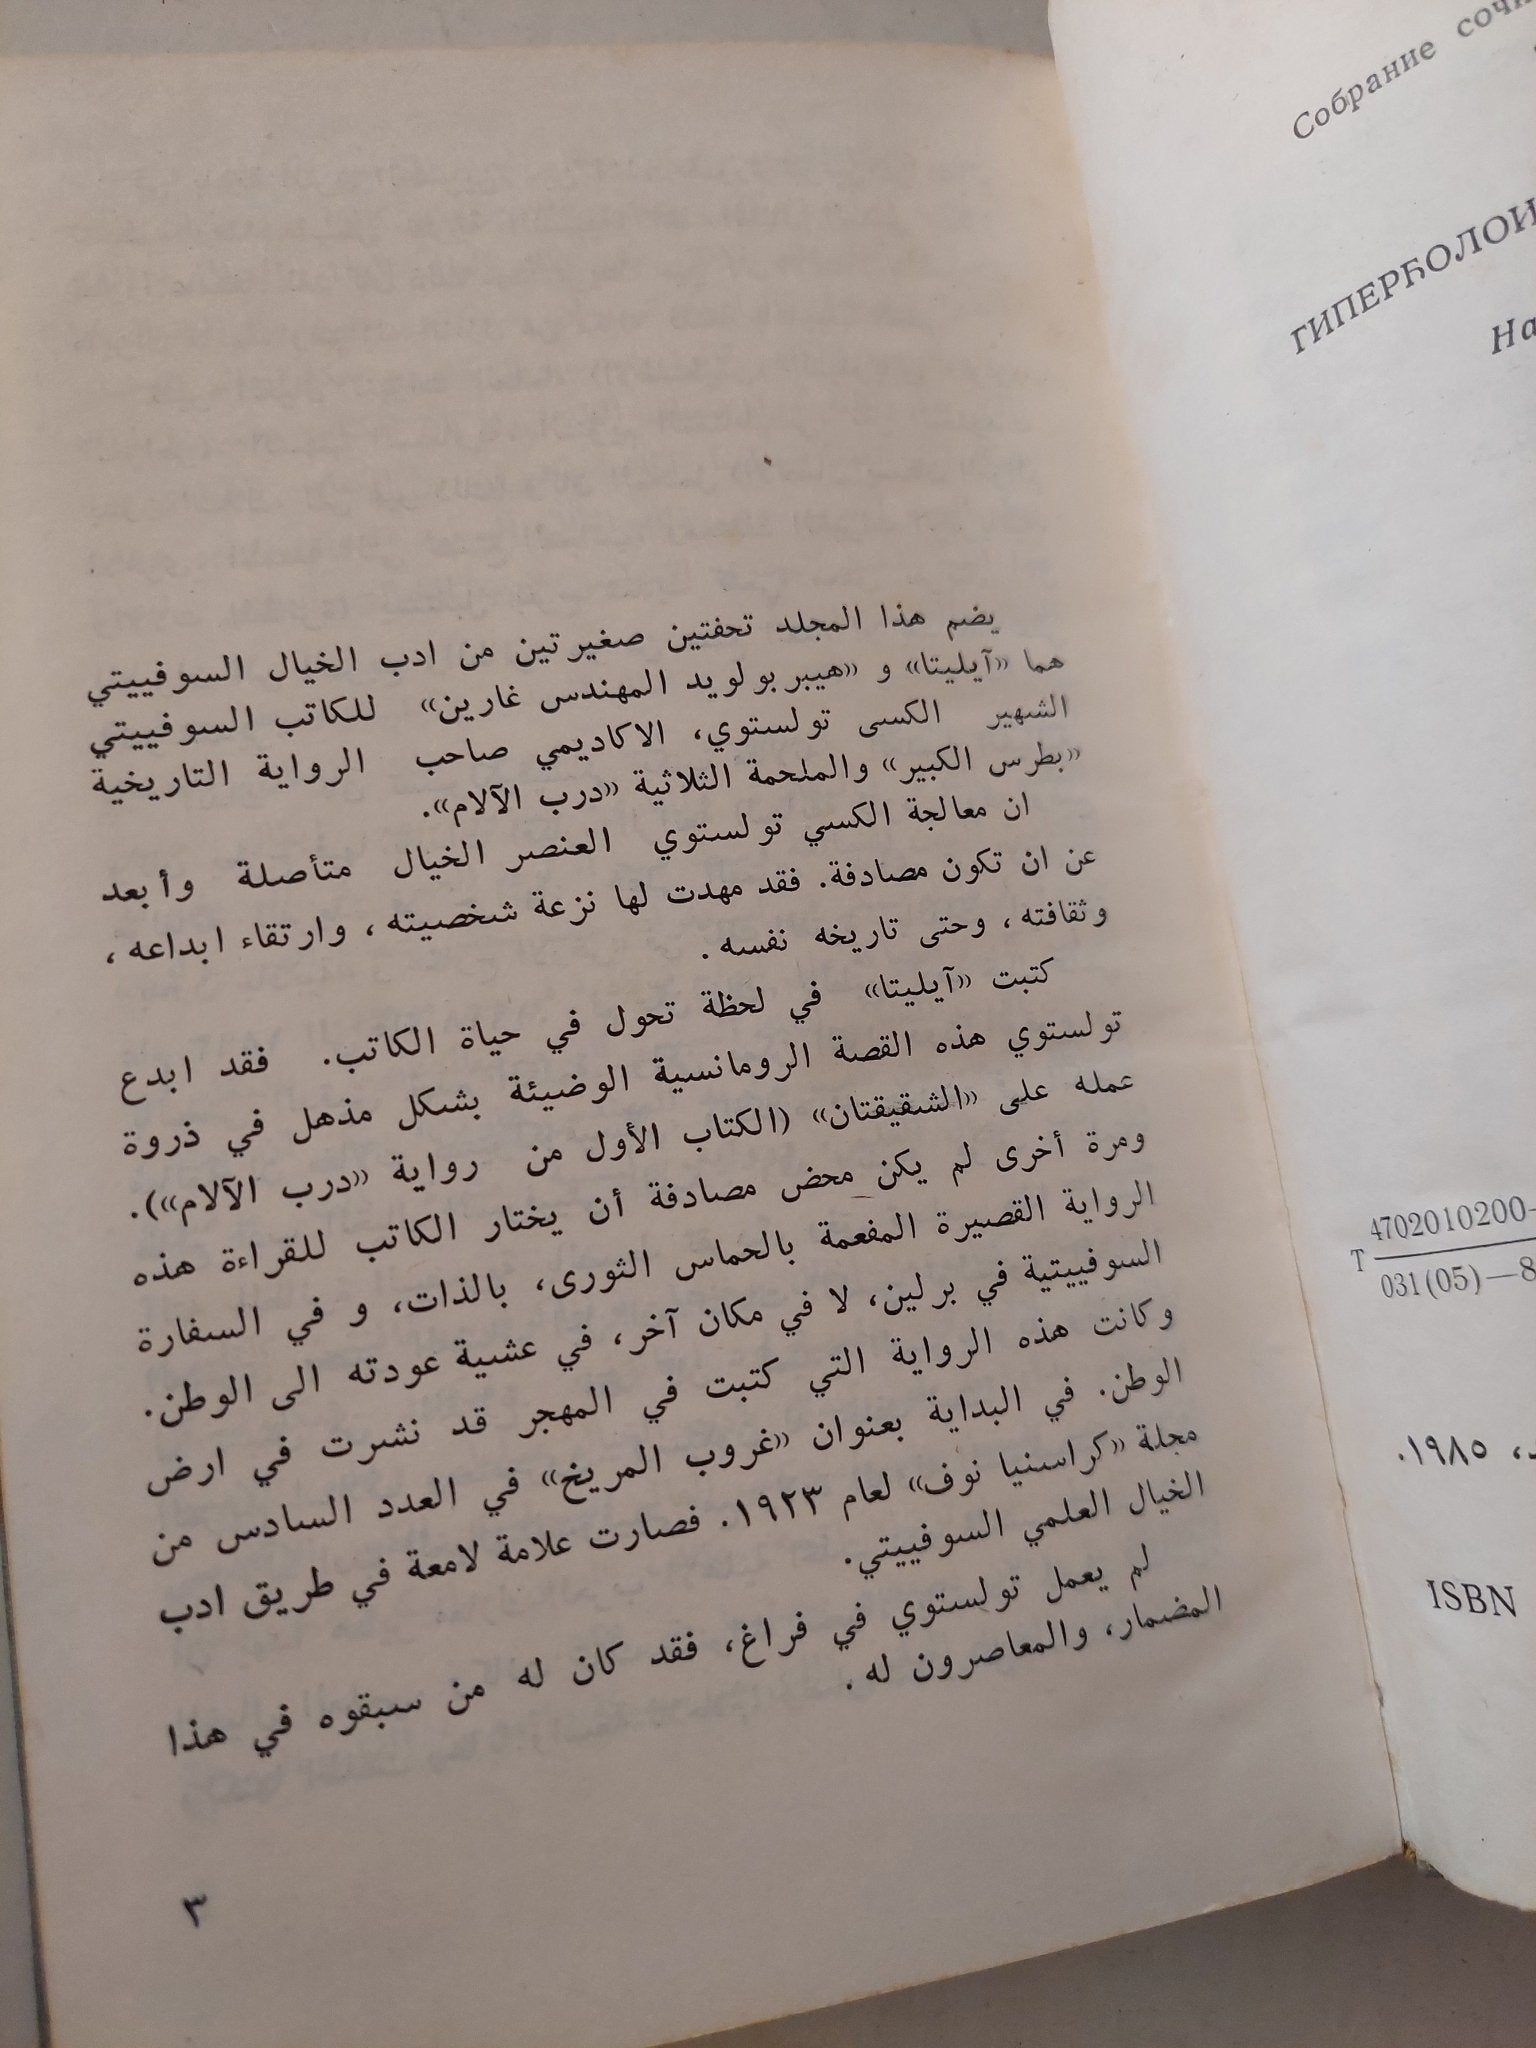 يضم هذا المجلد تحفتين صغيرتين من ادب الخيال السوفييتي
هما «آيليتا» و «هيبربولويد المهندس غارين» للكاتب السوفييتي
الشهير الكسى تولستوي، الاكاديمي صاحب الرواية التاريخية
«بطرس الكبير» والملحمة الثلاثية «درب الآلام».
ان معالجة الكسي تولستوي العنصر الخيال متأصلة وأبعد
عن ان تكون مصادفة. فقد مهدت لها نزعة شخصيته، وارتقاء ابداعه،
وثقافته، وحتى تاريخه نفسه.
كتبت «آيليتا» في لحظة تحول في حياة الكاتب. فقد ابدع
تولستوي هذه القصة الرومانسية الوضيئة بشكل مذهل في ذروة
عمله على «الشقيقتان» (الكتاب الأول من رواية «درب الآلام»).
ومرة أخرى لم يكن محض مصادفة أن يختار الكاتب للقراءة هذه
الرواية القصيرة المفعمة بالحماس الثورى، بالذات، و في السفارة
السوفييتية في برلين، لا في مكان آخر، في عشية عودته الى الوطن.
وكانت هذه الرواية التي كتبت في المهجر قد نشرت في ارض
الوطن. في البداية بعنوان «غروب المريخ» في العدد السادس من
مجلة «كراسنيا نوف» لعام ١٩٢٣. فصارت علامة لامعة في طريق ادب
الخيال العلمي السوفييتي.
لم يعمل تولستوي في فراغ، فقد كان له من سبقوه في هذا
المضمار، والمعاصرون له.
٣
Собрание
ГИПЕРБОЛОИ
На
Т 4702010200—
031(05)—8
١٩٨٥.
ISBN